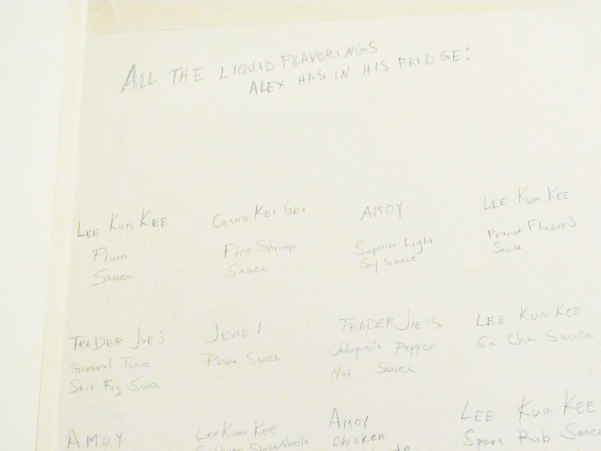 ALL THE LIQUID FLAVORINGS
ALEX HAS IN HIS FRIDGE:
LEE KUM KEE
Plum
Sauce
KEI
Fine Shrimp
Sauce
AMOY
Superior Light
Soy Sauce
LEE KUM KEE
Peanut Flavored
Sauce
TRADER JOE'S
General Tsao
Stir Fry Sauce
JEWEL
Pasta Sauce
TRADER JOE'S
Jalapeño Pepper
Hot Sauce
LEE KUM KEE
Sa Cha Sauce
AMOY
Lee Kum Kee
AMOY
Chicken
LEE KUM KEE
Spare Rib Sauce